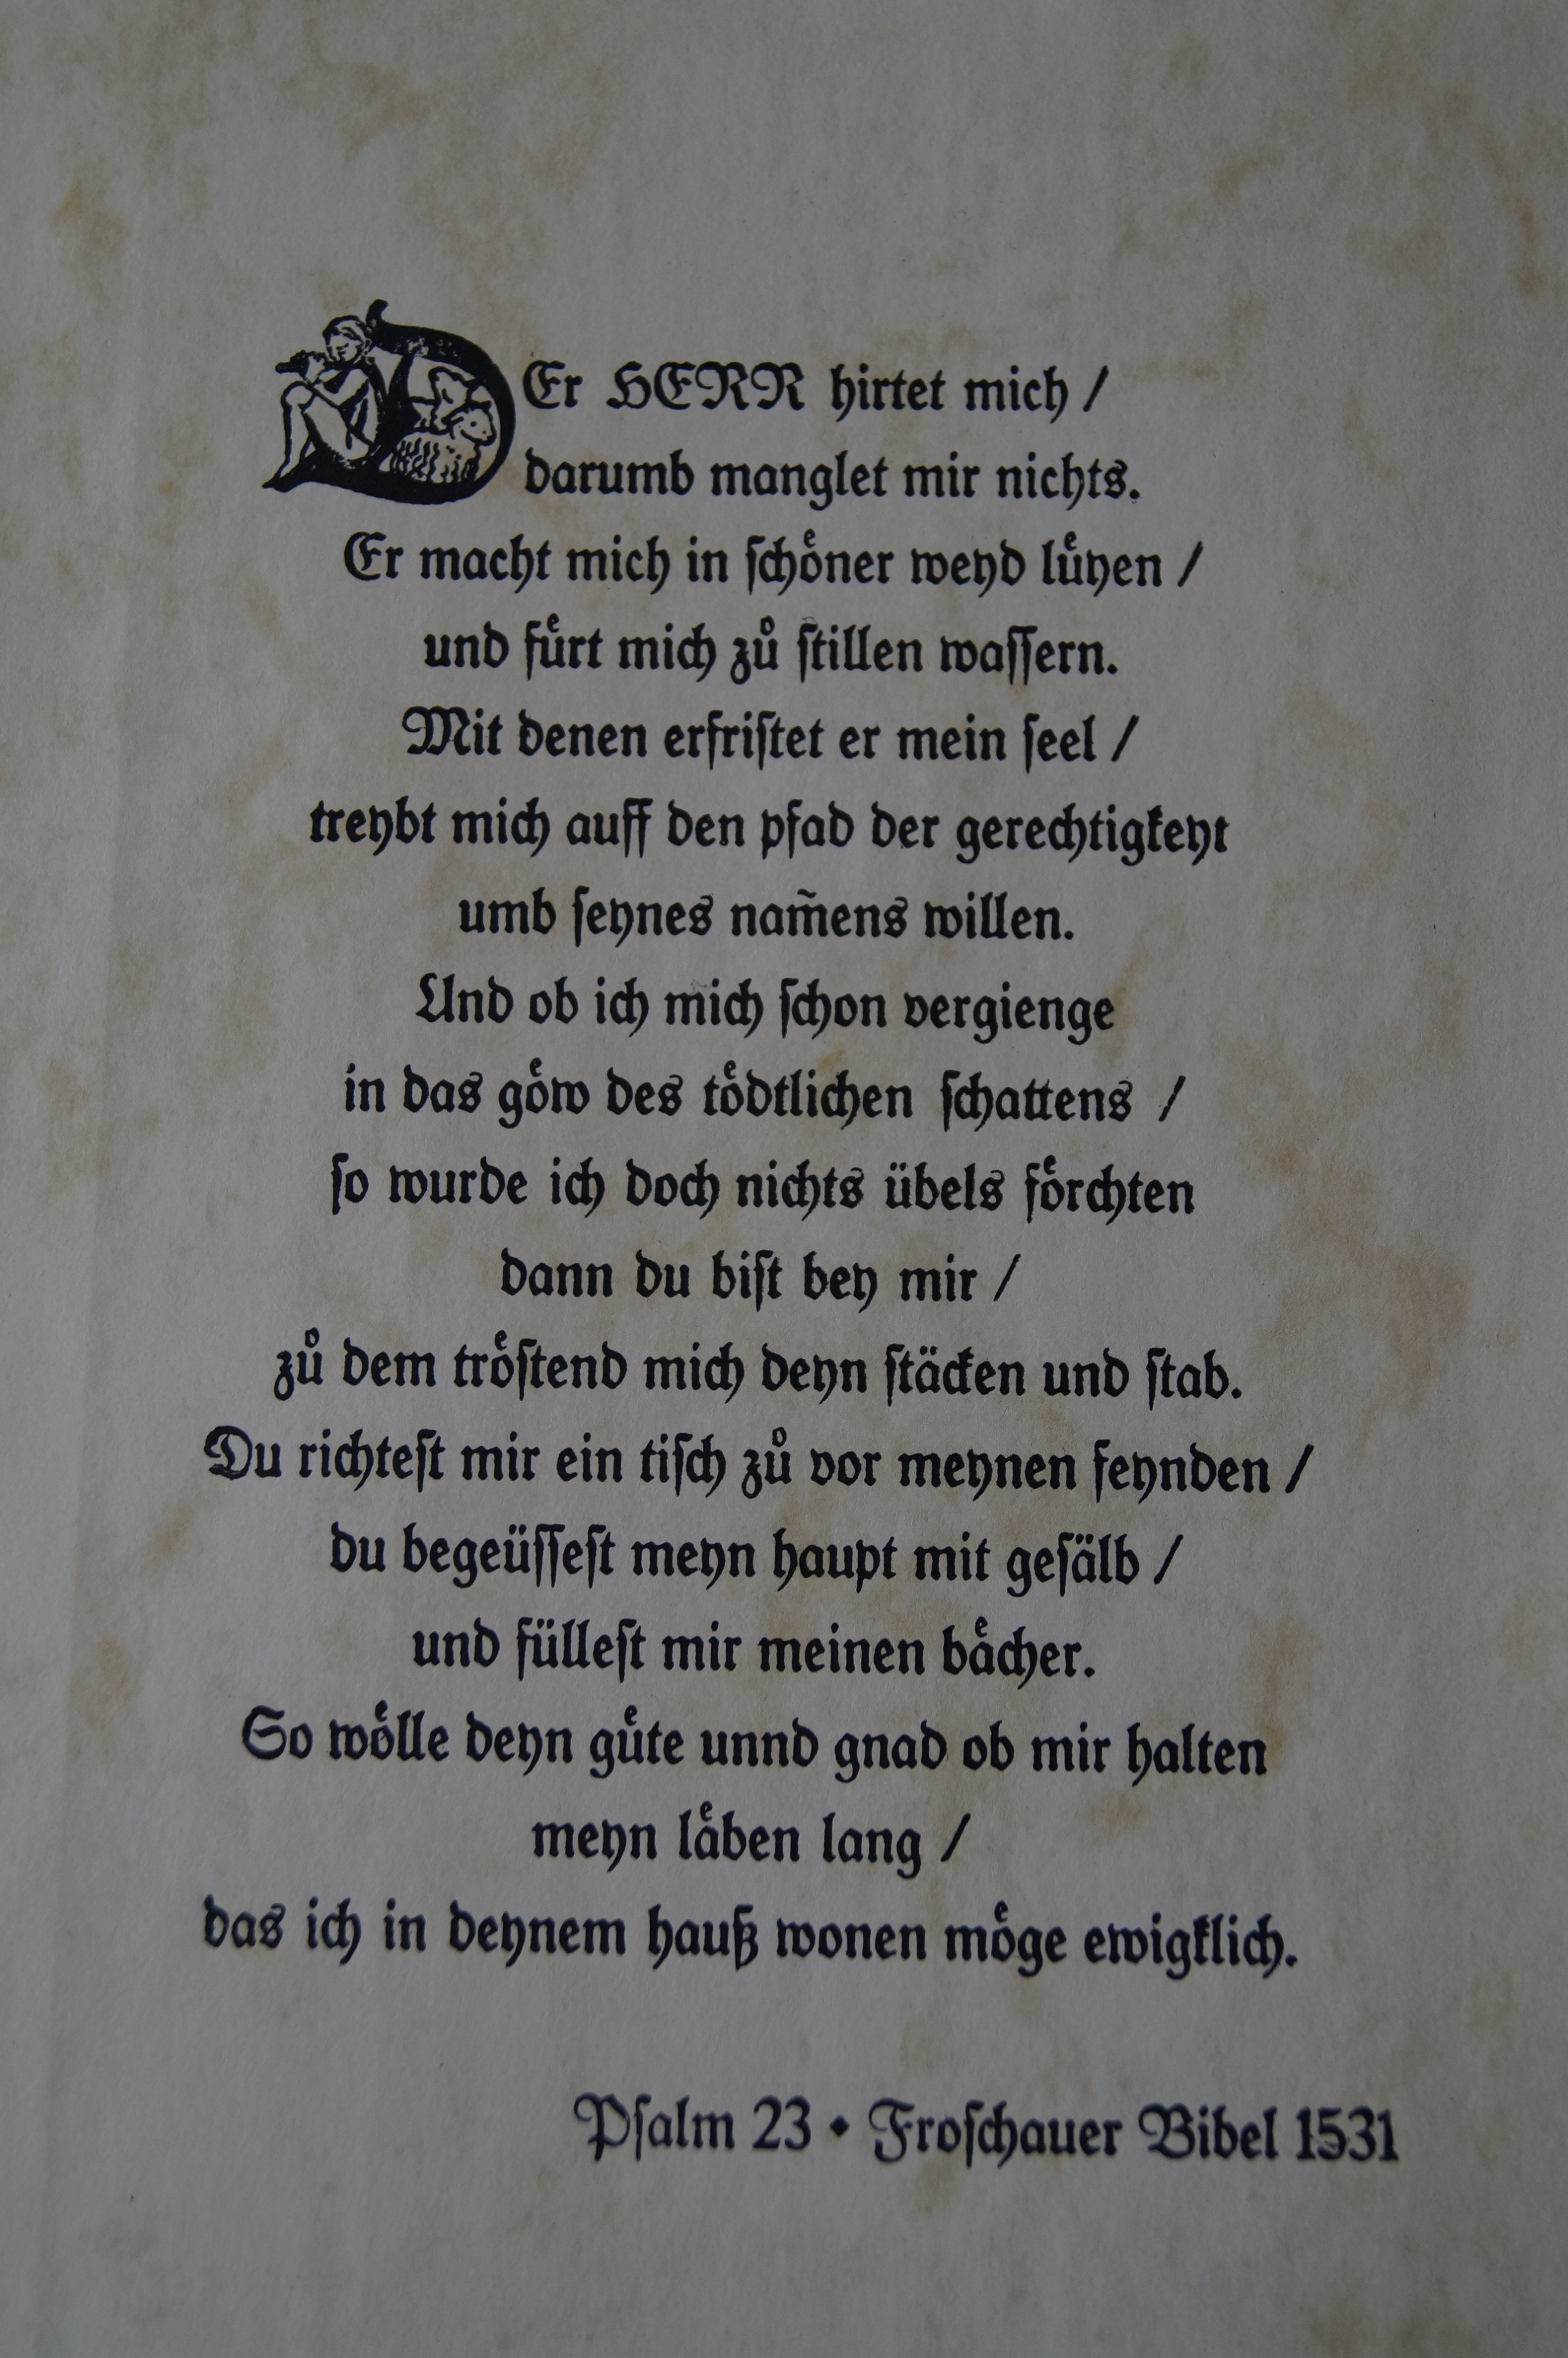 DEr HERR hirtet mich /
darumb manglet mir nichts.
Er macht mich in ſchoͤner weyd luͤyen /
und fuͤrt mich zuͦ ſtillen waſſern.
Mit denen erfriſtet er mein ſeel /
treybt mich auff den pfad der gerechtigkeyt
umb ſeynes nam̃ens willen.
Und ob ich mich ſchon vergienge
in das goͤw des toͤdtlichen ſchattens /
ſo wurde ich doch nichts übels foͤrchten
dann du biſt bey mir /
zuͦ dem troͤſtend mich deyn ſtäcken und ſtab.
Du richteſt mir ein tiſch zuͦ vor meynen feynden /
du begeüſſeſt meyn haupt mit geſälb /
und fülleſt mir meinen baͤcher.
So woͤlle deyn guͤte unnd gnad ob mir halten
meyn laͤben lang /
das ich in deynem hauß wonen moͤge ewigklich.
Pſalm 23 • Froſchauer Bibel 1531